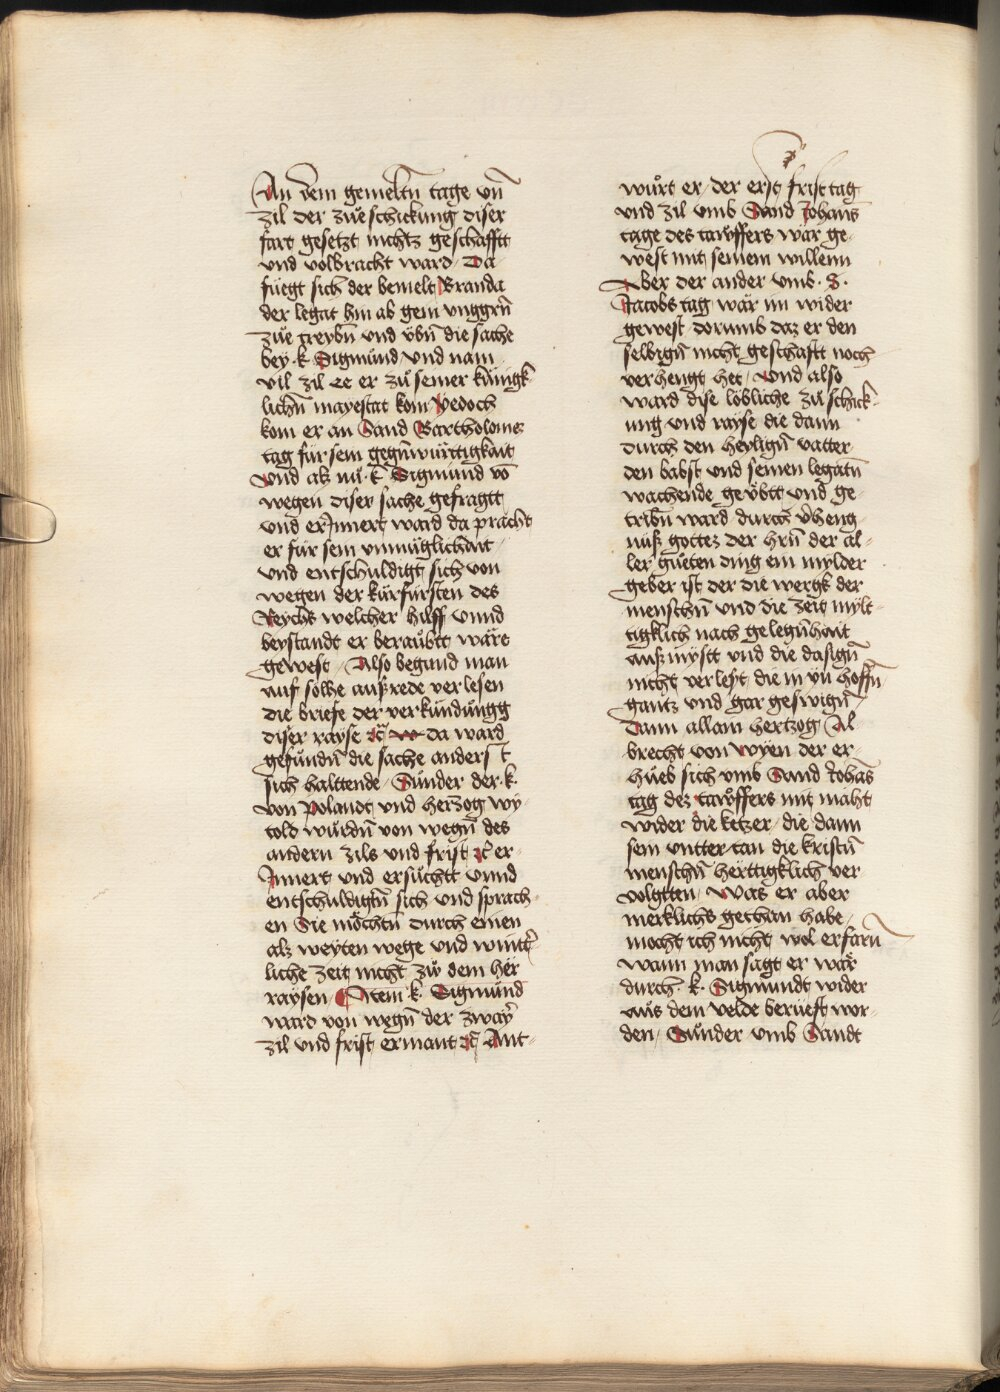 An dem gemeltn̄ tage vn̄
zil der zuͤe schickung diser
fart gesetzt nichtz geschafftt
vnd volbracht ward / Da
fuͤegt sich der bemelt Branda
der legat hin ab gein vnggrn̄
zuͤe treybn̄ vnd vͤbn̄ die sache
bey · k · Sigmund vnd nam
vil zil ee er zuͤ seiner kuͤnigk-
lichn̄ mayestat kom Yedoch
kom er an Sand Bartholomes
tag fuͤr sein gegn̄wuͤrttigkait
Vnd als nuͤ · k · Sigmund vō
wegen diser sache gefragtt
vnd erJnnert ward da pracht
er fuͤr sein vnmuͤglichait /
vnd entschuldigt sich von
wegen der kuͤrfuͤrsten des
Reychs welcher hilff vnnd
beystandt er beraubtt waͤre
gewest / Also begund man
auf solhe außrede verlesen
die briefe der verkuͤnduͤngg
diser rayse ꝛc̄ da ward
gefuͤndn̄ die sache anders t
sich halttende / Suͤnder der · k ·
von Polandt vnd hertzog wy-
told wuͤrdn̄ von wegn̄ des
andern zils vnd frist ꝛc̄ er-
Jnnert vnd ersuͤchtt vnnd
entschuldigtn̄ sich vnd sprach-
en Sie moͤchtn̄ durch einen
als weyten wege vnd wintt̄-
liche zeit nicht zuͤ dem her
raysen / Item k · Sigmund
ward von wegn̄ der zwaÿ
zil vnd frist ermant ꝛc̄ Ant-
wuͤrt er / der erst frist tag
vnd zil vmb Sand Johans
tage des tawffers war ge-
west mit seinem willenn
Aber der ander vmb · S ·
Jacobs tag waͤr im wider
gewest dorumb daz er den
selbign̄ nicht geschafft noch
verhengt het / Vnd also
ward dise loͤbliche zuͤ schick-
ung vnd rayse die dann
durch den heylign̄ vatter
den babst vnd seinen legatn̄
wachende geuͤbtt vnd ge-
tribn̄ ward durch v̄heng-
nuß gottez der hrn̄ der al-
ler guͤeten ding ein mylder
geber ist der die wergk der
menschn̄ vnd die zeit mylt-
tigklich nach gelegn̄hait
auß mystt vnd die dasign̄
nicht verlest die in yn hoffn̄
gantz vnd gar geswign̄ /
Dann allain hertzog Al-
brecht von wyen der er-
hueb sich vmb Sand Johās
tag dez tawffers mit maht
wider die ketzer / die dann
sein vntter tan die kristn̄
menschn̄ herttigklich ver
volgtten / Was er aber
merklichs gethan habe /
mocht ich nicht wol erfarn̄
wann man sagt er waͤr
durch · k · Sigmundt wider
auͤs dem velde berueft wor-
den / Suͤnder vmb Sandt